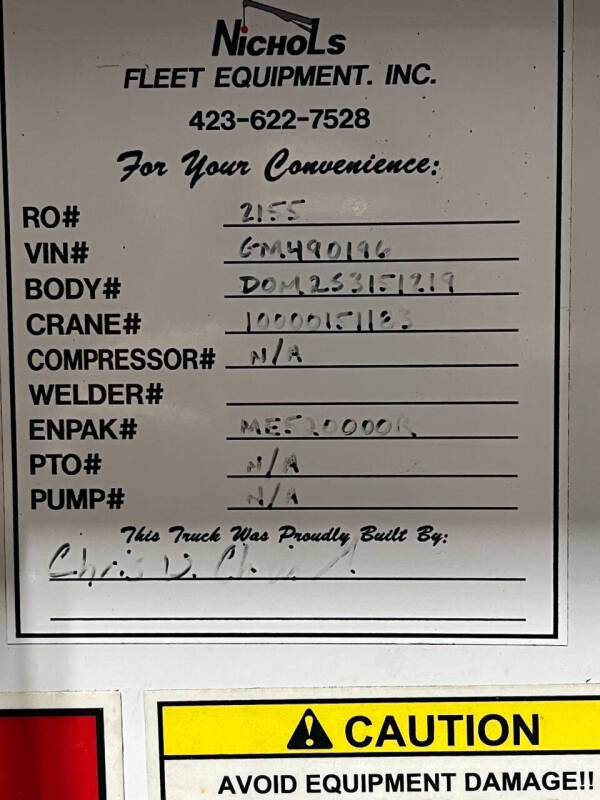 NICHOLS
FLEET EQUIPMENT. INC.
423-622-7528
For Your Convenience:
RO# 2155
VIN# GM490196
BODY# DOM2S3151219
CRANE# 10000151183
COMPRESSOR# N/A
WELDER#
ENPAK# ME520000R
PTO# N/A
PUMP# N/A
This Truck Was Proudly Built By:
Chris D.
CAUTION
AVOID EQUIPMENT DAMAGE!!